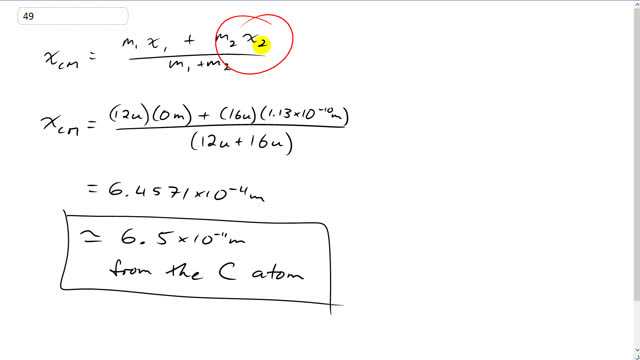 49
x_cm = (m₁ x₁ + m₂ x₂) / (m₁ + m₂)
x_cm = ((12u)(0m) + (16u)(1.13×10⁻¹⁰m)) / (12u + 16u)
= 6.4571×10⁻¹¹m
≃ 6.5×10⁻¹¹m
from the C atom